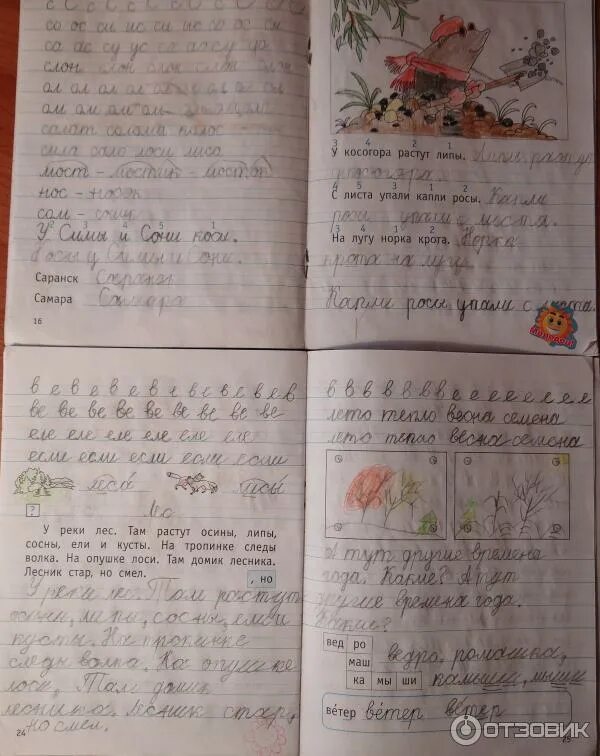 со ос си ис сы ыс со ос си
са ас су ус са ас су ус
слон слон слон слон слон
ол ол ол ол ол ол ол ол
ом ом ом ом
салат солома колос
сила сало лоси лиса
мост – мостик – мосток
нос – носок
сом – сомы
2 3 4 5 1
У Симы и Сони косы.
Косы у Симы и Сони.
Саранск Саранск
Самара Самара
16
3 4 2 1
У косогора растут липы. Липы растут
у косогора.
4 5 3 1 2
С листа упали капли росы. Капли
росы упали с листа.
3 4 1 2
На лугу норка крота. Норка
крота на лугу.
Капли росы упали с листа.
Молодец
в е в е в е в е в е в е в е в
ве ве ве ве ве ве ве ве ве
еле еле еле еле еле еле
если если если если если
леса́ лисы́
? Но
У реки лес. Там растут осины, липы,
сосны, ели и кусты. На тропинке следы
волка. На опушке лоси. Там домик лесника.
Лесник стар, но смел.
, но
У реки лес. Там растут
осины, липы, сосны, ели и
кусты. На тропинке
следы волка. На опушке
лоси. Там домик
лесника. Лесник стар,
но смел.
24
в в в в в в в е е е е е е е
лето тепло весна семена
лето тепло весна семена
А тут другие времена
года. Какие? А тут
другие времена года.
Какие?
вед ро
маш
ка мы ши
ведро, ромашка,
камыши, мыши
ве́тер ве́тер ве́тер
25
ОТЗОВИК